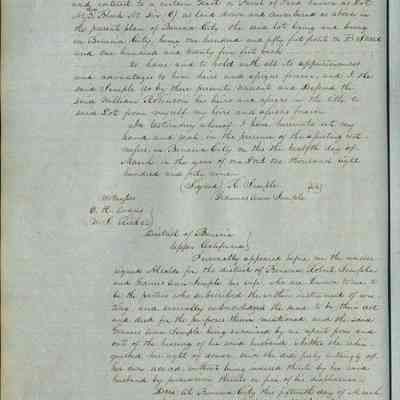 and interest to a certain Tract or Parcel of Land known as Lot
No. 3, Block M. Div. C) as laid down and numbered as above in
the present plan of Benicia City the said lot lying and being
in Benicia City, being one hundred and fifty feet front on E Street
and one hundred and twenty five feet back
to have and to hold with all its appurtenances
and advantages to him heirs and assigns forever, and I the
said Semple do by these presents warrant and defend the
said William Robinson his heirs and assigns in the title to
said Lot from myself my heirs and assigns forever
In testimony whereof I have hereunto set my
hand and seal in the presence of the attesting wit-
nesses, in Benicia City on this the twelfth day of
March in the year of our Lord one thousand eight
hundred and forty nine
(Signed) R. Semple
Frances Ann Semple
Witnesses
District of Benicia
Upper California
Personally appeared before me the under-
signed Alcalde for the district of Benicia Robert Semple
and Frances Ann Semple his wife who are known to me to
be the parties who subscribed the within instrument of wri-
ting and severally acknowledged the same to be their act
and deed for the purposes therein mentioned and the said
Frances Ann Semple being examined by me apart from and
out of the hearing of her said husband whether she relin-
quished her right of dower said she did freely willingly of
her own accord without being induced thereto by her said
husband by persuasion threats or fear of his displeasure
Done at Benicia City this fifteenth day of March